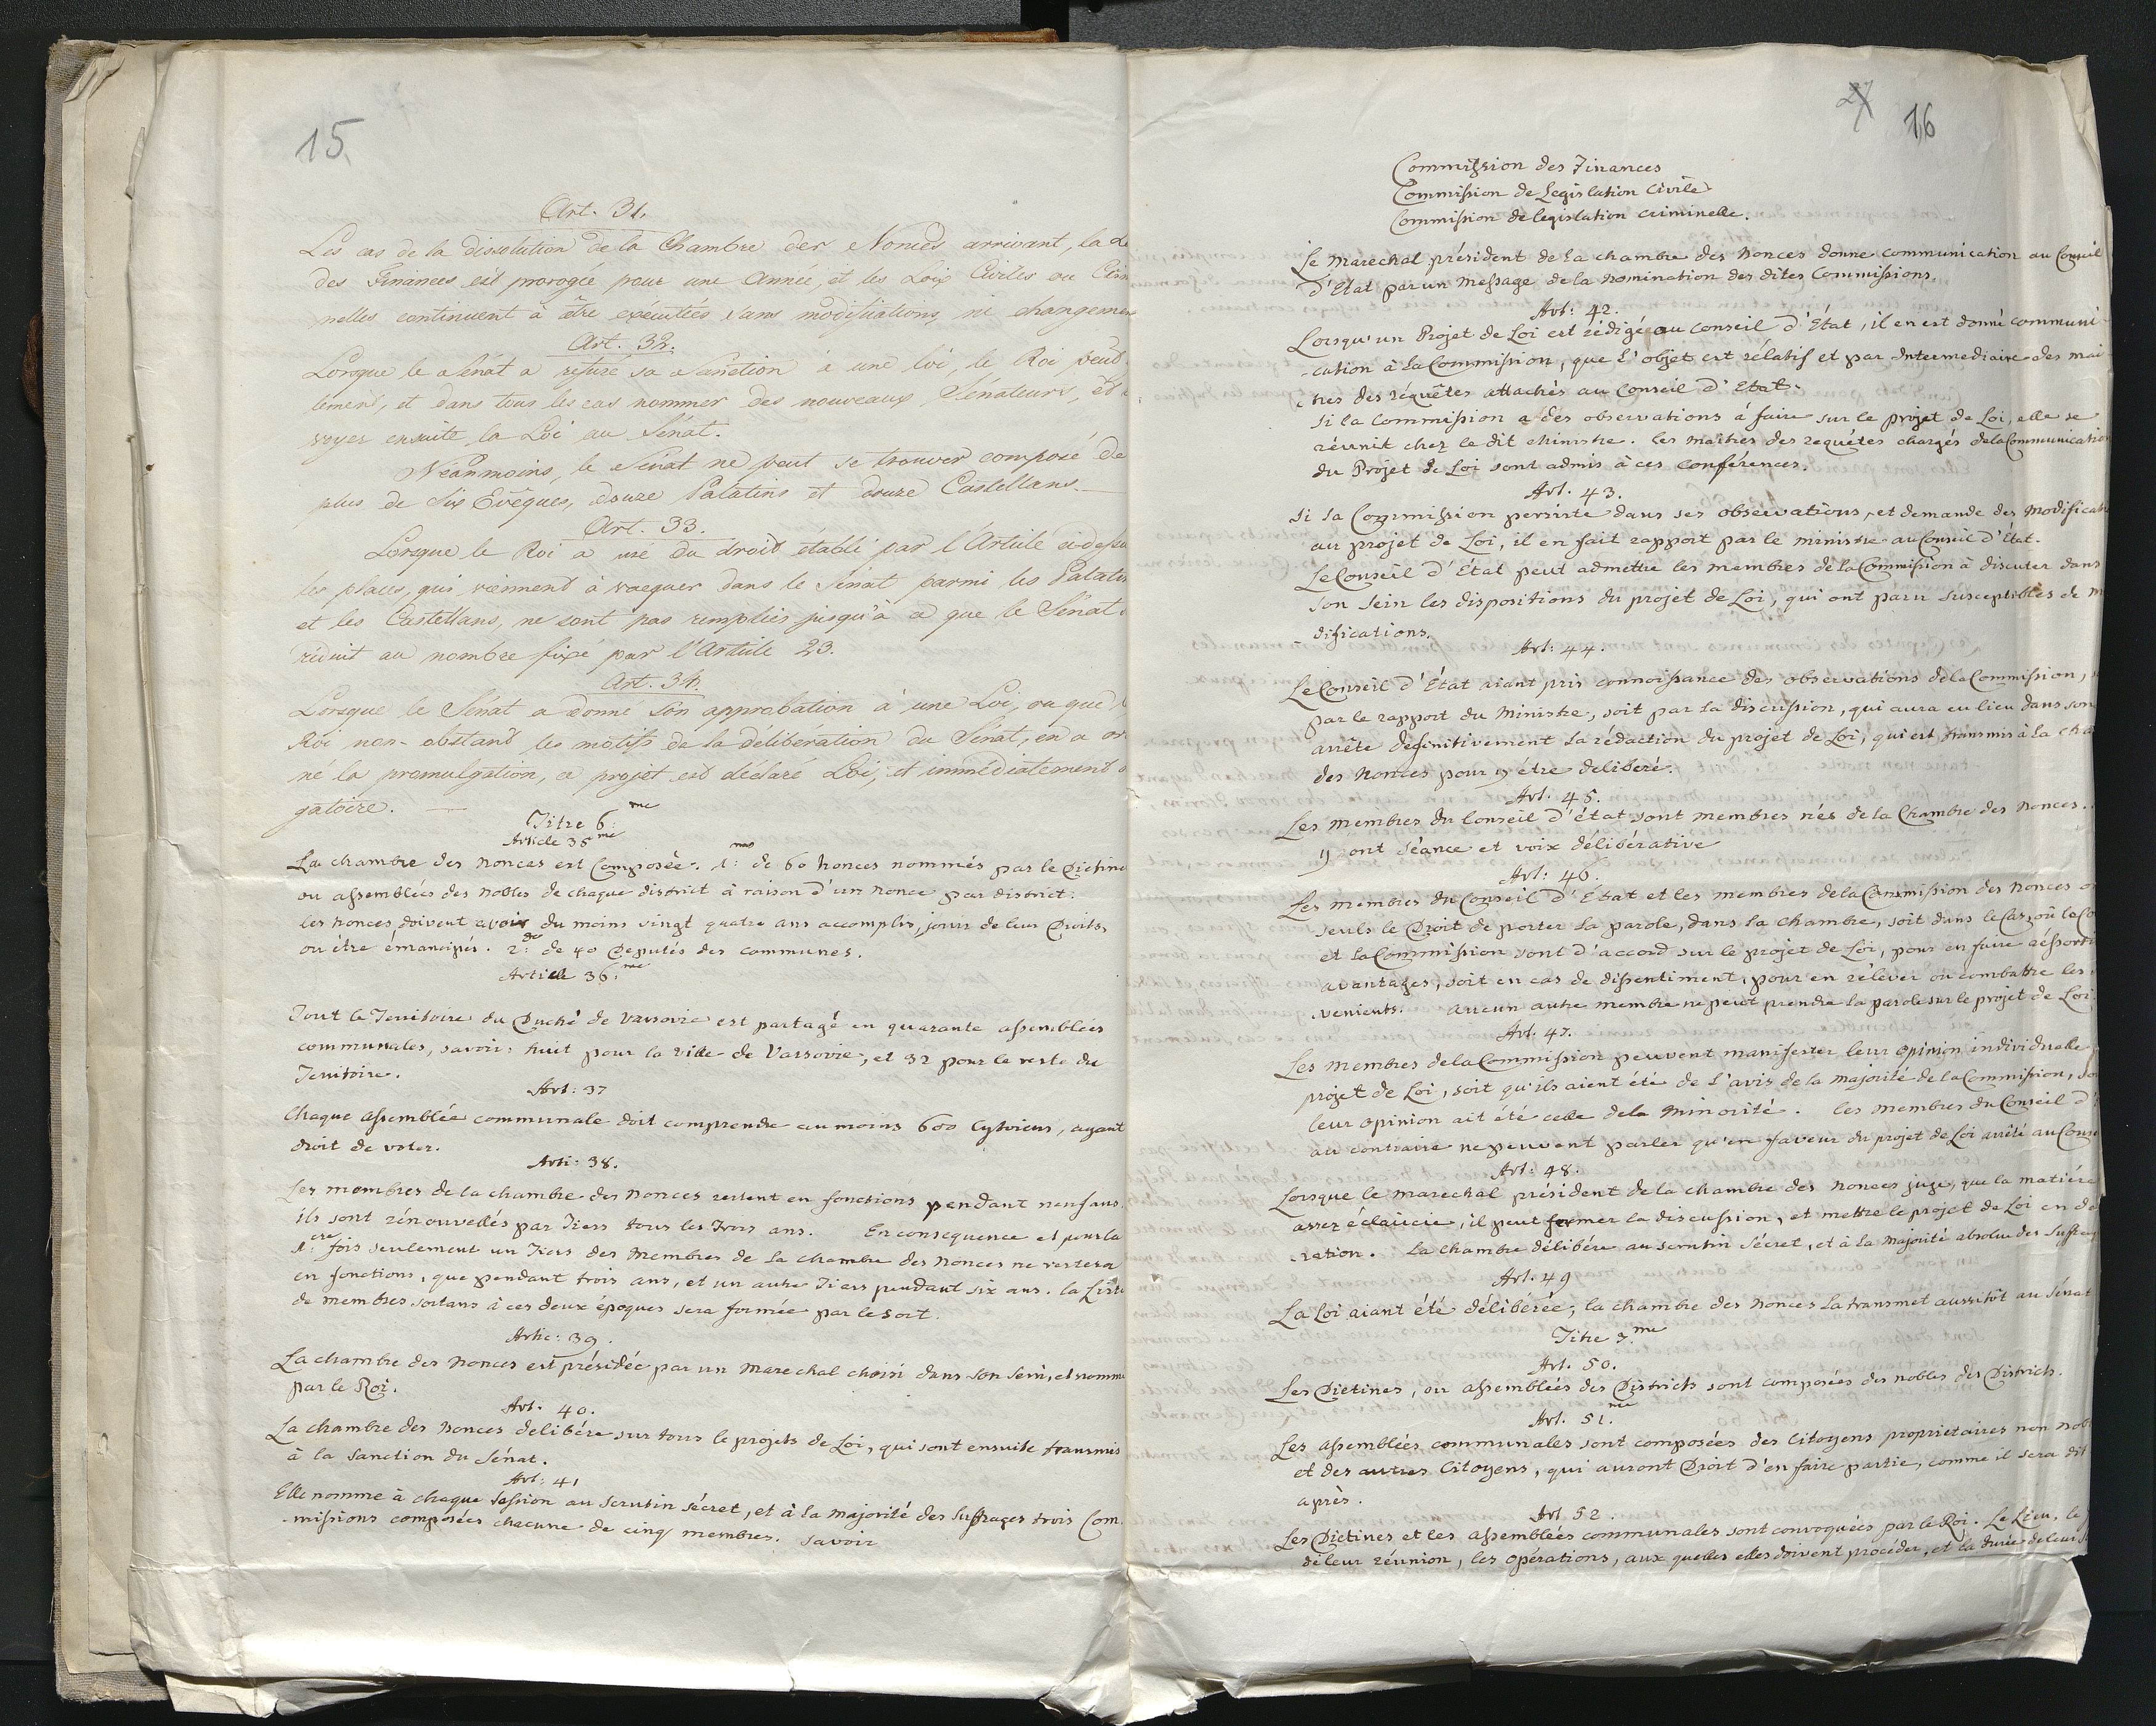 15
Art. 31.
Les cas de la dissolution de la Chambre der Nonces arrivant, la
des Finances est prorogée pour une Année, et les Loix Civiles ou Crim
nelles continuent à être exécutées sans modifications, ni changemen
Art. 32.
Lorsque le sénat a refusé sa sanction à une loi, le Roi peut
lement, et dans tous les cas nommer des nouveaux Sénateurs, et
voyer ensuite la Loi au Sénat.
Néanmoins, le Sénat ne peut se trouver composé de
plus de Six Evêques, douze Palatins et douze Castellans.
Art. 33.
Lorsque le Roi a usé du droit établi par l'Article ci-dessu
les places, qui viennent à vacquer dans le Sénat parmi les Palatin
et les Castellans, ne sont pas remplies jusqu'à ce que le Sénat
réduit au nombre fixé par l'Article 23.
Art. 34.
Lorsque le Sénat a donné son approbation à une Loi, ou que
Roi non-obstant les motifs de la délibération du Sénat, en a or
né la promulgation, ce projet est déclaré Loi, et immédiatement o
gatoire.
Titre 6.me
Article 35me
La chambre des nonces est Composée. 1:mo de 60 nonces nommés par le Dictine
ou assemblées des nobles de chaque district à raison d'un nonce par district.
les nonces doivent avoir du moins vingt quatre ans accomplis, jouir de leur Droits,
ou être émancipés. 2:do de 40 Députés des communes.
Article 36.me
Tout le Territoire du Duché de Varsovie est partagé en quarante assemblées
communales, savoir: huit pour la ville de Varsovie, et 32 pour le reste du
Territoire.
Art: 37
Chaque assemblée communale doit comprendre au moins 600 Cytoiens, ayant
droit de voter.
Arti: 38.
Les membres de la chambre des nonces restent en fonctions pendant neuf ans.
ils sont rénouvellés par Tiers tous les trois ans. En consequence et pour la
1:ere fois seulement un Tiers des Membres de la chambre des nonces ne restera
en fonctions, que pendant trois ans, et un autre Tiers pendant six ans. la Liste
de membres sortans à ces deux époques sera formée par le sort.
Artic: 39.
La chambre des nonces est présidée par un Marechal choisi dans son sein, et nomm
par le Roi.
Art. 40.
La chambre des nonces delibére sur tous le projets de Loi, qui sont ensuite transmis
à la sanction du Sénat.
Art: 41
Elle nomme à chaque session au scrutin sécret, et à la majorité des suffrages trois Com
-missions composées chacune de cinq membres. savoir
27 16
Commission des Finances
Commission de Legislation Civile
Commission de legislation criminelle.
Le marechal président de la chambre des nonces donne communication au Conseil
d'Etat par un Message de la nomination des dites Commissions.
Art: 42.
Lorsqu'un Projet de Loi est rédigé au conseil d'État, il en est donné communi
-cation à la Commission, que l'objet est rélatif et par Intermediaire des mai
tres des réquêtes attachés au Conseil d'Etat.
si la Commission a des observations à faire sur le projet de Loi, elle se
réunit chez le dit Ministre. les maitres des requétes chargés de la Communication
du Projet de Loi sont admis à ces conférences.
Art. 43.
si la Commission persiste dans ses observations, et demande des Modificati
au projet de Loi, il en fait rapport par le ministre au Conseil d'État.
Le Conseil d'État peut admettre les membres de la Commission à discuter dans
son sein les dispositions du projet de Loi, qui ont paru susceptibles de m
difications.
Art: 44.
Le Conseil d'État aiant pris connoissance des observations de la Commission,
par le rapport du Ministre, soit par la discussion, qui aura eu lieu dans son
arrête definitivement la rédaction du projet de Loi, qui est transmis à la cha
des nonces pour y être deliberé.
Art. 45.
Les membres du Conseil d'état sont membres nés de la Chambre des nonces.
y ont séance et voix délibérative
Art: 46.
Les membres du Conseil d'Etat et les membres de la Commission des nonces o
seuls le Droit de porter la parole, dans la chambre, soit dans le Cas, où le Co
et la Commission sont d'accord sur le projet de Loi, pour en faire réssorti
avantages, soit en cas de dissentiment, pour en rélever ou combattre les
venients. Aucun autre membre ne peut prendre la parole sur le projet de Loi
Art. 47.
Les membres de la Commission peuvent manifester leur opinion individuelle
projet de Loi, soit qu'ils aient été de l'avis de la majorité de la Commission, soi
leur opinion ait été celle de la minorité. les membres du Conseil d'
au contraire ne peuvent parler qu'en faveur du projet de Loi arrêté au Conse
Art: 48.
Lorsque le marechal président de la chambre des nonces juge, que la matiére
assez éclaircie, il peut fermer la discussion, et mettre le projet de Loi en dé
-ration. La chambre délibére au scrutin sécret, et à la majorité absolue des suffrag
Art. 49
La Loi aiant été délibérée, la chambre des nonces la transmet aussitôt au sénat
Titre 7.me
Art. 50.
Les Dietines, ou assemblées des Districts sont composées des nobles des Districts.
Art. 51.me
Les assemblées communales sont composées des Citoyens proprietaires non nob
et des autres Citoyens, qui auront Droit d'en faire partie, comme il sera dit
après.
Art 52.
Les Dietines et les assemblées communales sont convoquées par le Roi. Le Lieu, le
de leur réunion, les opérations, aux quelles elles doivent procéder, et la durée de leur